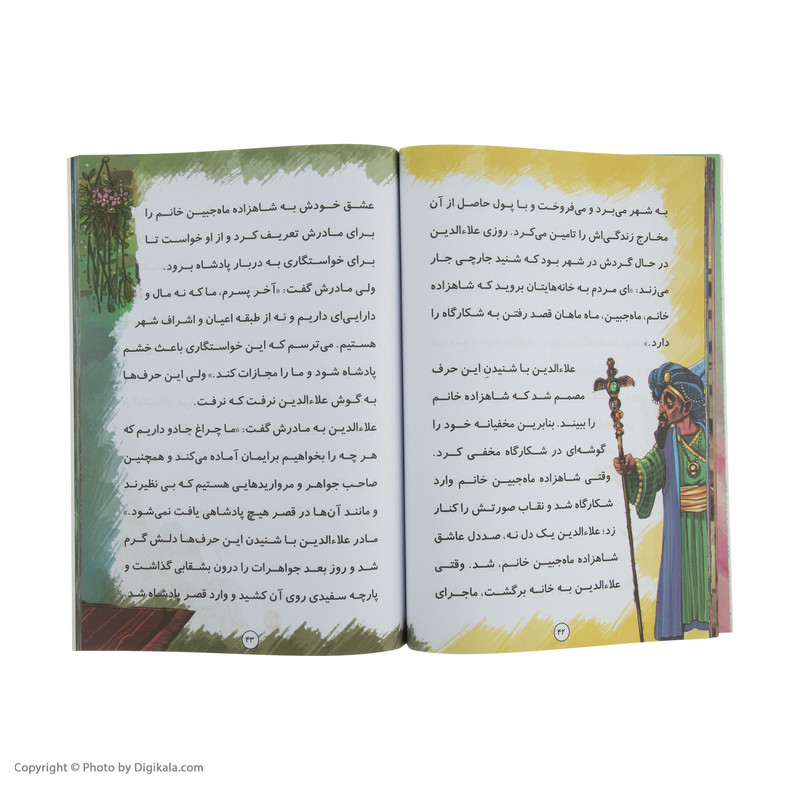 به شهر می‌برد و می‌فروخت و با پول حاصل از آن
مخارج زندگی‌اش را تامین می‌کرد. روزی علاءالدین
در حال گردش در شهر بود که شنید جارچی جار
می‌زند: «ای مردم به خانه‌هایتان بروید که شاهزاده
خانم، ماه‌جبین، ماه ماهان قصد رفتن به شکارگاه را
دارد.»
علاءالدین با شنیدنِ این حرف
مصمم شد که شاهزاده خانم
را ببیند. بنابرین مخفیانه خود را
گوشه‌ای در شکارگاه مخفی کرد.
وقتی شاهزاده ماه‌جبین خانم وارد
شکارگاه شد و نقاب صورتش را کنار
زد؛ علاءالدین یک دل نه، صددل عاشق
شاهزاده ماه‌جبین خانم، شد. وقتی
علاءالدین به خانه برگشت، ماجرای
۴۲
عشق خودش به شاهزاده ماه‌جبین خانم را
برای مادرش تعریف کرد و از او خواست تا
برای خواستگاری به دربار پادشاه برود.
ولی مادرش گفت: «آخر پسرم، ما که نه مال و
دارایی‌ای داریم و نه از طبقه اعیان و اشراف شهر
هستیم. می‌ترسم که این خواستگاری باعث خشم
پادشاه شود و ما را مجازات کند.» ولی این حرف‌ها
به گوش علاءالدین نرفت که نرفت.
علاءالدین به مادرش گفت: «ما چراغ جادو داریم که
هر چه را بخواهیم برایمان آماده می‌کند و همچنین
صاحب جواهر و مرواریدهایی هستیم که بی نظیرند
و مانند آن‌ها در قصر هیچ پادشاهی یافت نمی‌شود.»
مادر علاءالدین با شنیدن این حرف‌ها دلش گرم
شد و روز بعد جواهرات را درون بشقابی گذاشت و
پارچه سفیدی روی آن کشید و وارد قصر پادشاه شد.
۴۳
Copyright © Photo by Digikala.com